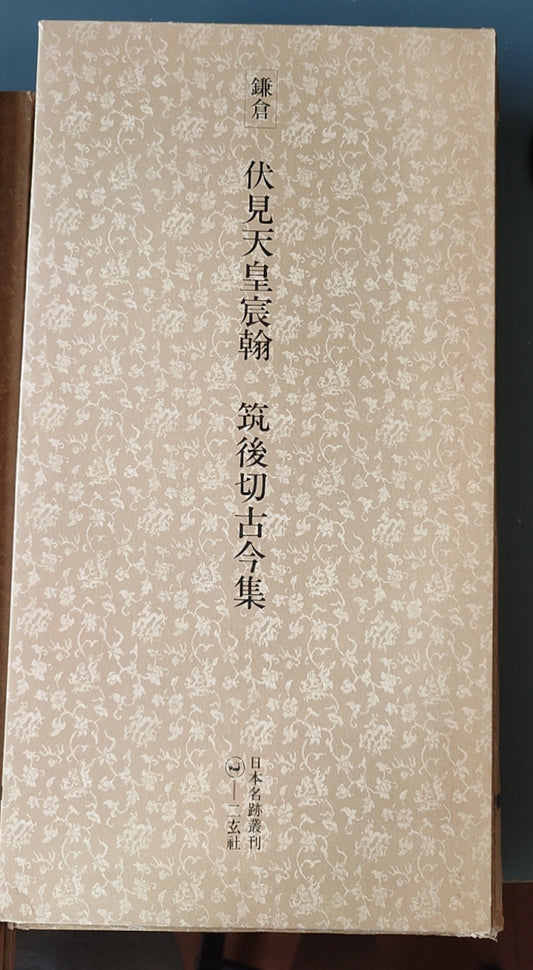 鎌倉
伏見天皇宸翰　筑後切古今集
日本名跡叢刊
二玄社